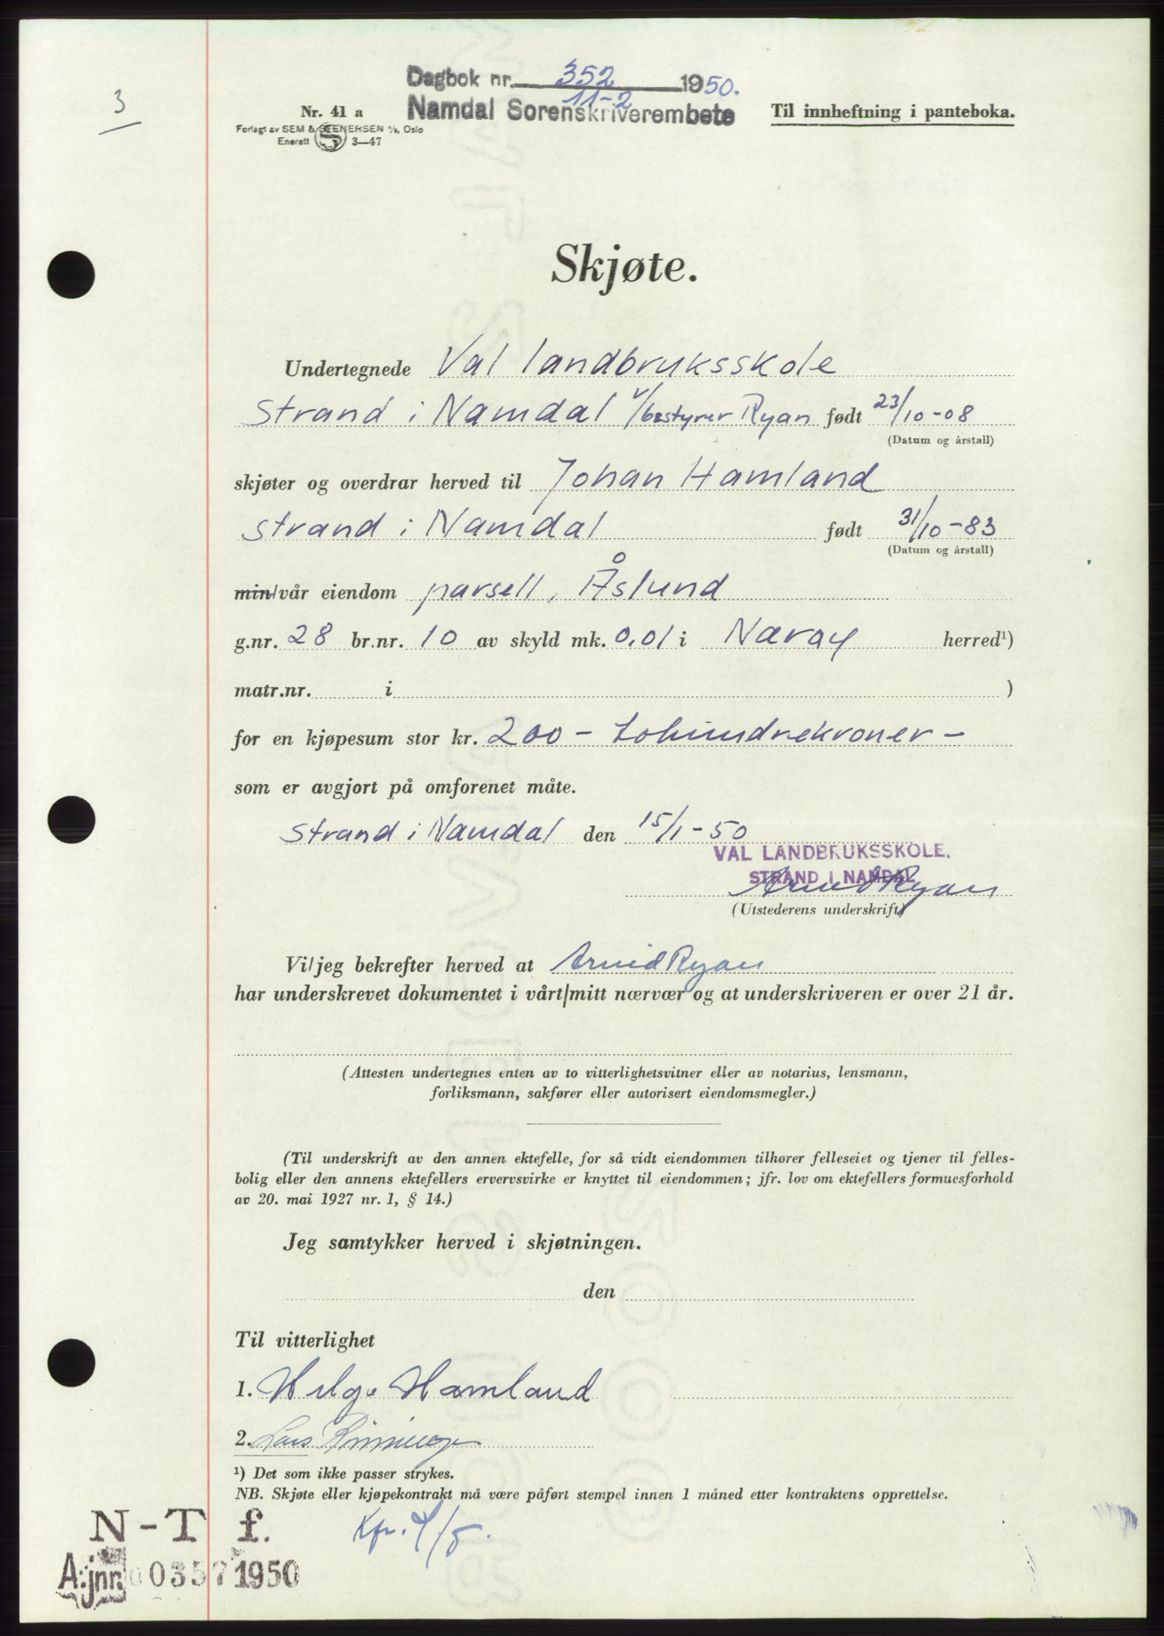 3
Dagbok nr. 352 1950.
11-2
Namdal Sorenskriverembete
Nr. 41 a
Til innheftning i panteboka.
Forlagt av SEM & STENERSEN A/S, Oslo
Enerett 3—47
Skjøte.
Undertegnede Val landbruksskole
Strand i Namdal v/bestyrer Ryan født 23/10-08
(Datum og årstall)
skjøter og overdrar herved til Johan Hamland
Strand i Namdal født 31/10-83
(Datum og årstall)
min/vår eiendom parsell, Åslund
g.nr. 28 br.nr. 10 av skyld mk. 0,01 i Nærøy herred¹)
matr.nr. i )
for en kjøpesum stor kr. 200 - tohundrekroner -
som er avgjort på omforenet måte.
Strand i Namdal den 15/1-50
VAL LANDBRUKSSKOLE.
STRAND I NAMDAL
Arvid Ryan
(Utstederens underskrift)
Vi/jeg bekrefter herved at Arvid Ryan
har underskrevet dokumentet i vårt/mitt nærvær og at underskriveren er over 21 år.
(Attesten undertegnes enten av to vitterlighetsvitner eller av notarius, lensmann,
forliksmann, sakfører eller autorisert eiendomsmegler.)
(Til underskrift av den annen ektefelle, for så vidt eiendommen tilhører felleseiet og tjener til felles-
bolig eller den annens ektefellers ervervsvirke er knyttet til eiendommen; jfr. lov om ektefellers formuesforhold
av 20. mai 1927 nr. 1, § 14.)
Jeg samtykker herved i skjøtningen.
den
Til vitterlighet
1. Helge Hamland
2. Lars
¹) Det som ikke passer strykes.
NB. Skjøte eller kjøpekontrakt må være påført stempel innen 1 måned etter kontraktens opprettelse.
N-T f.
A:jnr. 0357 1950